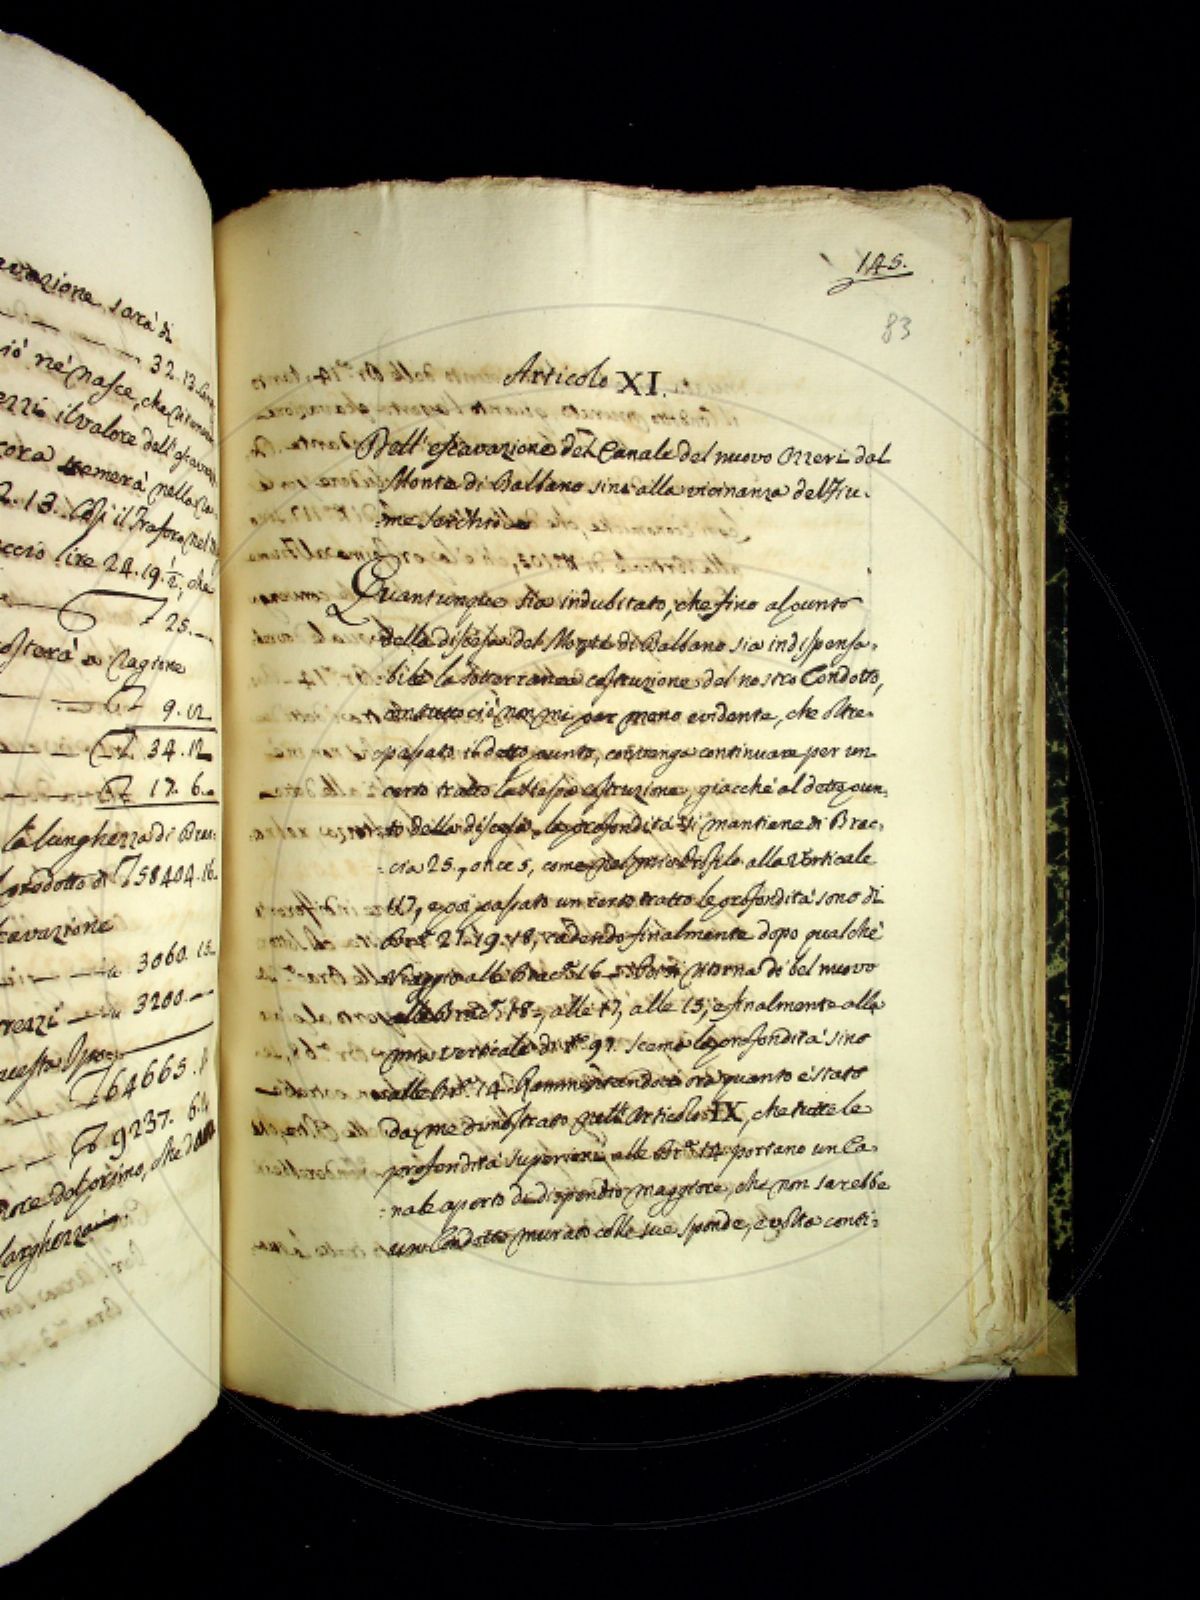 avazione sarà di
32.13.
iò nè nasce, che
ezzi il valore dell'
cora nella
2.13. Così il Trasporto nel
ccio lire 24.19.½, che
25.
osterà a ragione
9.
34.12
17.6.
la lunghezza di Brac:
prodotto di 58404.16.
cavazione
3060.15.
3200.
questa
64665.
9237.6.
del primo, che
larghezza
145.
83
Articolo XI.
Dell'escavazione del Canale del nuovo Ozzeri dal
Monte di Balbano sino alla vicinanza del Fiu:
me Serchio
Quantunque sia indubitato, che fino al punto
della discesa del Monte di Balbano sia indispensa:
:bile la sotterranea costruzione del nostro Condotto,
contuttociò non mi par meno evidente, che oltre:
:passato il detto punto, convenga continuare per un
certo tratto la stessa costruzione, giacchè al detto pun:
:to della discesa, la profondità si mantiene di Brac:
:cia 25., once 5, come nel mio Profilo alla Verticale
117, e poi passato un certo tratto le profondità sono di
Bra. 21. 19. 18, cadendo finalmente dopo qualche
viaggio alle Brac. 16 ritorna di bel nuovo
alle Brac. 18:, alle 17, alle 15, e finalmente alla
mia verticale di N.º 97. scema la profondità sino
alle Br. 14. Rammentandoci ora quanto è stato
da me dimostrato nell'Articolo IX, che tutte le
profondità superiori alle Br. 14 portano un Ca
:nale aperto di dispendio maggiore, che non sarebbe
un Condotto murato colle sue sponde, e volta conti: